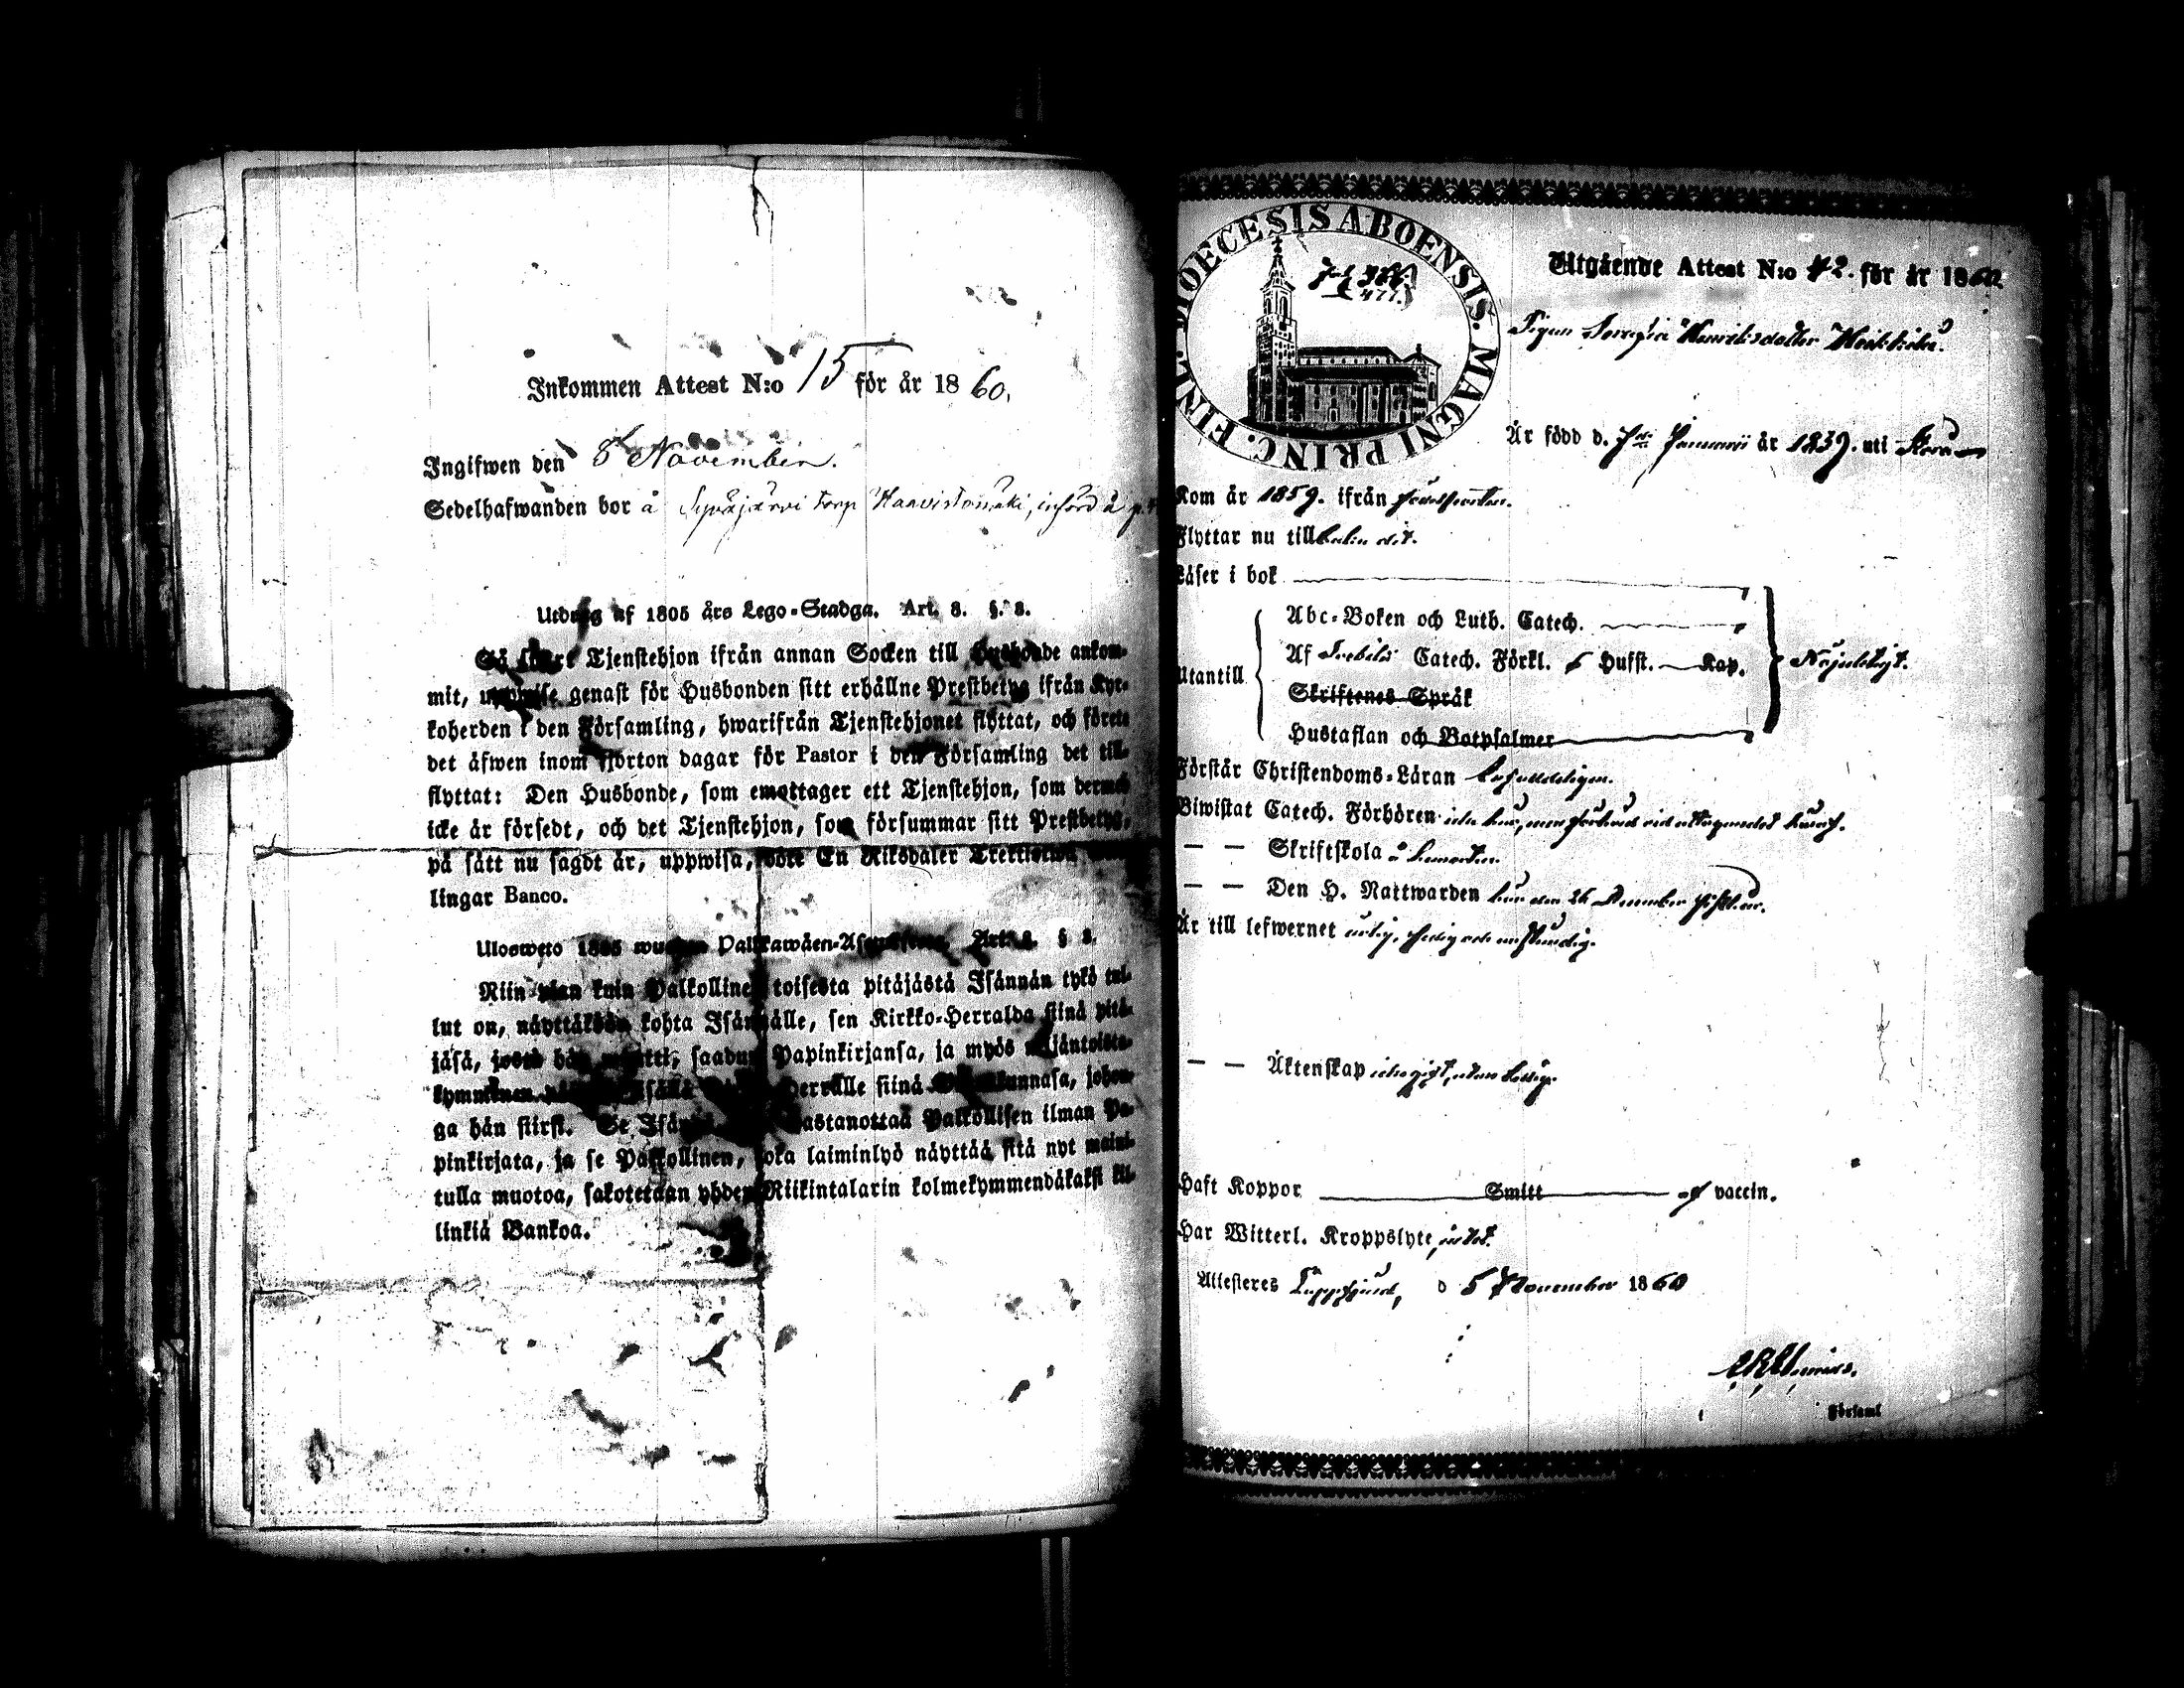 Inkommen Attest N:o 15 för år 1860.
Ingifwen den 8 November.
Sedelhafwanden bor å Syväjärvi torp Haavistomäki, införd å p.
Utdrag af 1805 års Lego-Stadga. Art. 8. §. 8.
Så snart Tjenstehjon ifrån annan Socken till Husbonde ankom-
mit, uppwise genast för Husbonden sitt erhållne Prestbetyg ifrån Kyr-
koherden i den Församling, hwarifrån Tjenstehjonet flyttat, och förete
det äfwen inom fjorton dagar för Pastor i den Församling det till-
flyttat: Den Husbonde, som emottager ett Tjenstehjon, som dermed
icke är försedt, och det Tjenstehjon, som försummar sitt Prestbetyg,
på sätt nu sagdt är, uppwisa, böte En Riksdaler Trettiotwå
lingar Banco.
Ulosweto 1805 wuoden Palkkawäen-Asetuksesta. Art. 8. § 8.
Niin pian kuin Palkollinen toisesta pitäjästä Isännän tykö tul-
lut on, näyttäköön kohta Isännälle, sen Kirkko-Herralda siinä pitä-
jäsä, josta hän muutti, saadun Papinkirjansa, ja myös neljäntoista-
kymmenen sisällä Herralle siinä Seurakunnasa, johon-
ga hän siirsi. Se Isäntä wastanottaa Palkollisen ilman Pa-
pinkirjata, ja se Palkollinen, joka laiminlyö näyttää sitä nyt maini-
tulla muotoa, sakotetaan yhden Riikintalarin kolmekymmendäkaksi kil-
linkiä Bankoa.
FINL. DIOECESIS ABOENSIS. MAGNI PRINC.
477.
Utgående Attest N:o 42. för år 1860.
Pigan Henriksdotter
Är född d. 7de Januarii år 1839. uti
Kom år 1859. ifrån födelseorten.
Flyttar nu till
Läser i bok
Abc-Boken och Luth. Catech.
Utantill Af Svebelii Catech. Förkl. Hufst. Kap. Nöjeligt.
Skriftenes Språk
Hustaflan och Botpsalmer
Förstår Christendoms-Läran
Biwistat Catech. Förhören icke här, men
— — Skriftskola å hemorten.
— — Den H. Nattwarden här den 26 December
Är till lefwernet ärlig, och anständig.
— — Äktenskap icke gift, utan ledig.
Haft Koppor Smitt af vaccin.
Har Witterl. Kroppslyte, intet.
Attesteres d 5 November 1860
Församl